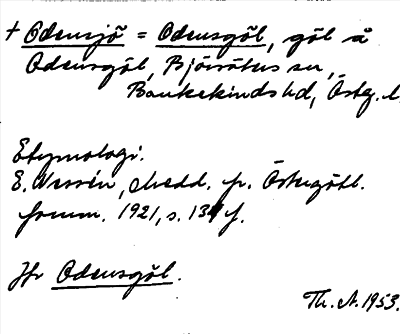 † Odensjö = Odensgöl, göl å
Odensgöl, Björsäters sn,
Bankekinds hd, Östg. l.
Etymologi.
E. Wessén, Medd. fr. Östergötl.
fornm. 1921, s. 134 f.
Jfr Odensgöl.
Th. A. 1953.